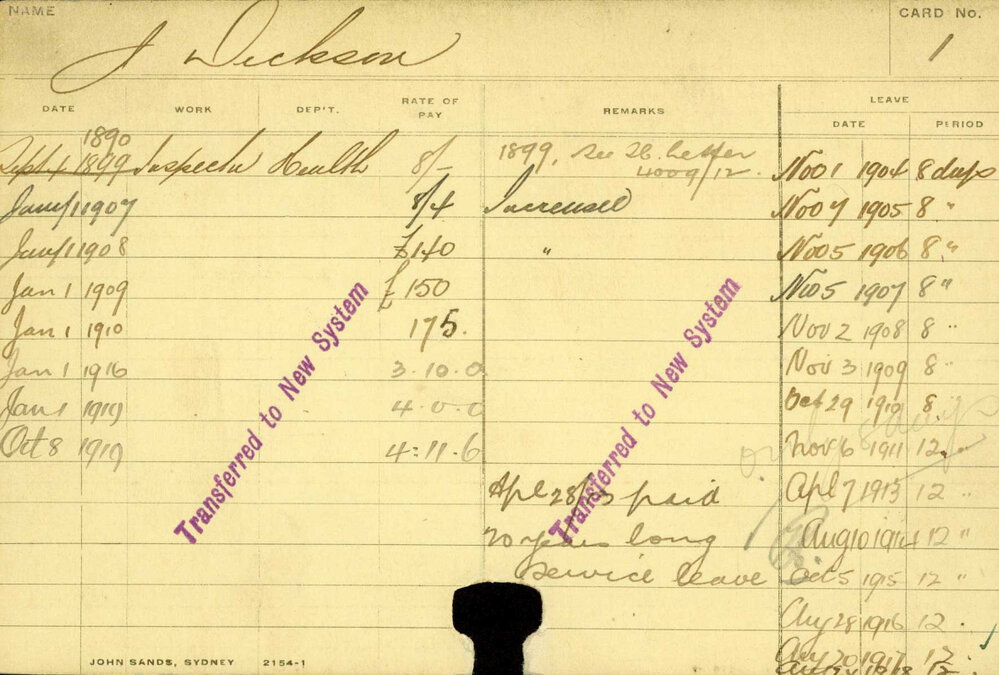 NAME
CARD No.
J Dickson
1
DATE WORK DEP'T. RATE OF PAY REMARKS LEAVE
DATE PERIOD
1890
Sept 4 1899 Inspector Health 8/- 1899, see Letter 4009/12. Nov 1 1904 8 days
Jany 1 1907 8/4 Increased Nov 7 1905 8 "
Jany 1 1908 £140 " Nov 5 1906 8 "
Jan 1 1909 £150 Nov 5 1907 8 "
Jan 1 1910 175. Nov 2 1908 8 "
Jan 1 1916 3.10.0 Nov 3 1909 8 "
Jan 1 1919 4.0.0 Oct 29 1910 8.
Oct 8 1919 4:11.6 Nov 6 1911 12
Apl 28/ paid Apl 7 1913 12 "
20 years long Aug 10 1914 12 "
service leave Oct 5 1915 12 "
Aug 28 1916 12.
Aug 20 1917 12.
12.
Transferred to New System
Transferred to New System
JOHN SANDS, SYDNEY 2154-1